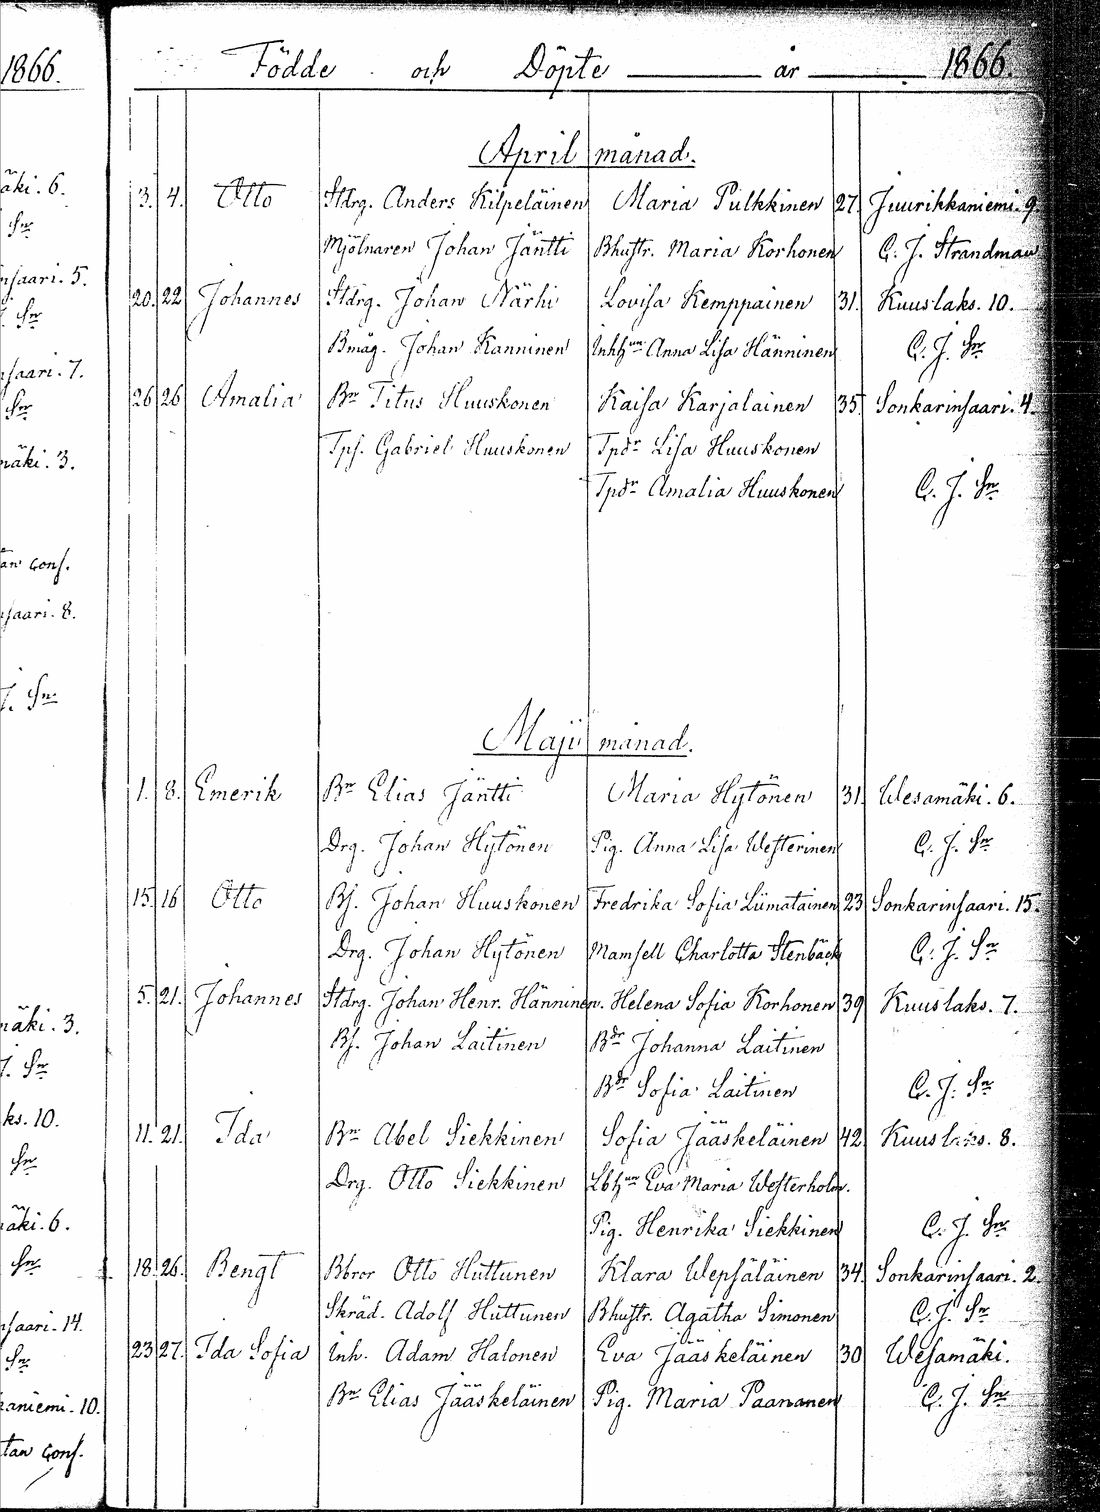 1866.
äki. 6.
Sn
nsaari. 5.
J. Sn
nsaari. 7.
Sn
mäki. 3.
tan Cons.
nsaari. 8.
J. Sn
mäki. 3.
J. Sn
ks. 10.
Sn
mäki. 6.
Sn
nsaari. 14.
Sn
kaniemi. 10.
tan Cons.
Födde och Döpte år 1866.
April månad.
3. 4. Otto Stdrg. Anders Kilpeläinen Maria Pulkkinen 27. Juurikkaniemi. 9.
Mjölnaren Johan Jäntti Bhustr. Maria Korhonen C. J. Strandman
20. 22 Johannes Stdrg. Johan Närhi Lovisa Kemppainen 31. Kuuslaks. 10.
Bmåg. Johan Kanninen Inhhun Anna Lisa Hänninen C. J. Sn
26 26 Amalia Bn Titus Huuskonen Kaisa Karjalainen 35 Sonkarinsaari. 4.
Tps. Gabriel Huuskonen Tpdr Lisa Huuskonen
Tpdr Amalia Huuskonen C. J. Sn
Maji månad.
1. 8. Emerik Bn Elias Jäntti Maria Hytönen 31. Wesamäki. 6.
Drg. Johan Hytönen Pig. Anna Lisa Westerinen C. J. Sn
15. 16 Otto Bs. Johan Huuskonen Fredrika Sofia Liimatainen 23 Sonkarinsaari. 15.
Drg. Johan Hytönen Mamsell Charlotta Stenbäck C. J. Sn
5. 21. Johannes Stdrg. Johan Henr. Hänninen. Helena Sofia Korhonen 39 Kuuslaks. 7.
Bs. Johan Laitinen Bdr Johanna Laitinen
Bdr Sofia Laitinen C. J. Sn
11. 21. Ida Bn Abel Siekkinen Sofia Jääskeläinen 42. Kuuslaks. 8.
Drg. Otto Siekkinen Lbhun Eva Maria Westerholm.
Pig. Henrika Siekkinen C. J. Sn
18. 26. Bengt Bbror Otto Huttunen Klara Wepsäläinen 34. Sonkarinsaari. 2.
Skräd. Adolf Huttunen Bhustr. Agatha Simonen C. J. Sn
23 27. Ida Sofia Inh. Adam Halonen Eva Jääskeläinen 30 Wesamäki.
Bn Elias Jääskeläinen Pig. Maria Paananen C. J. Sn